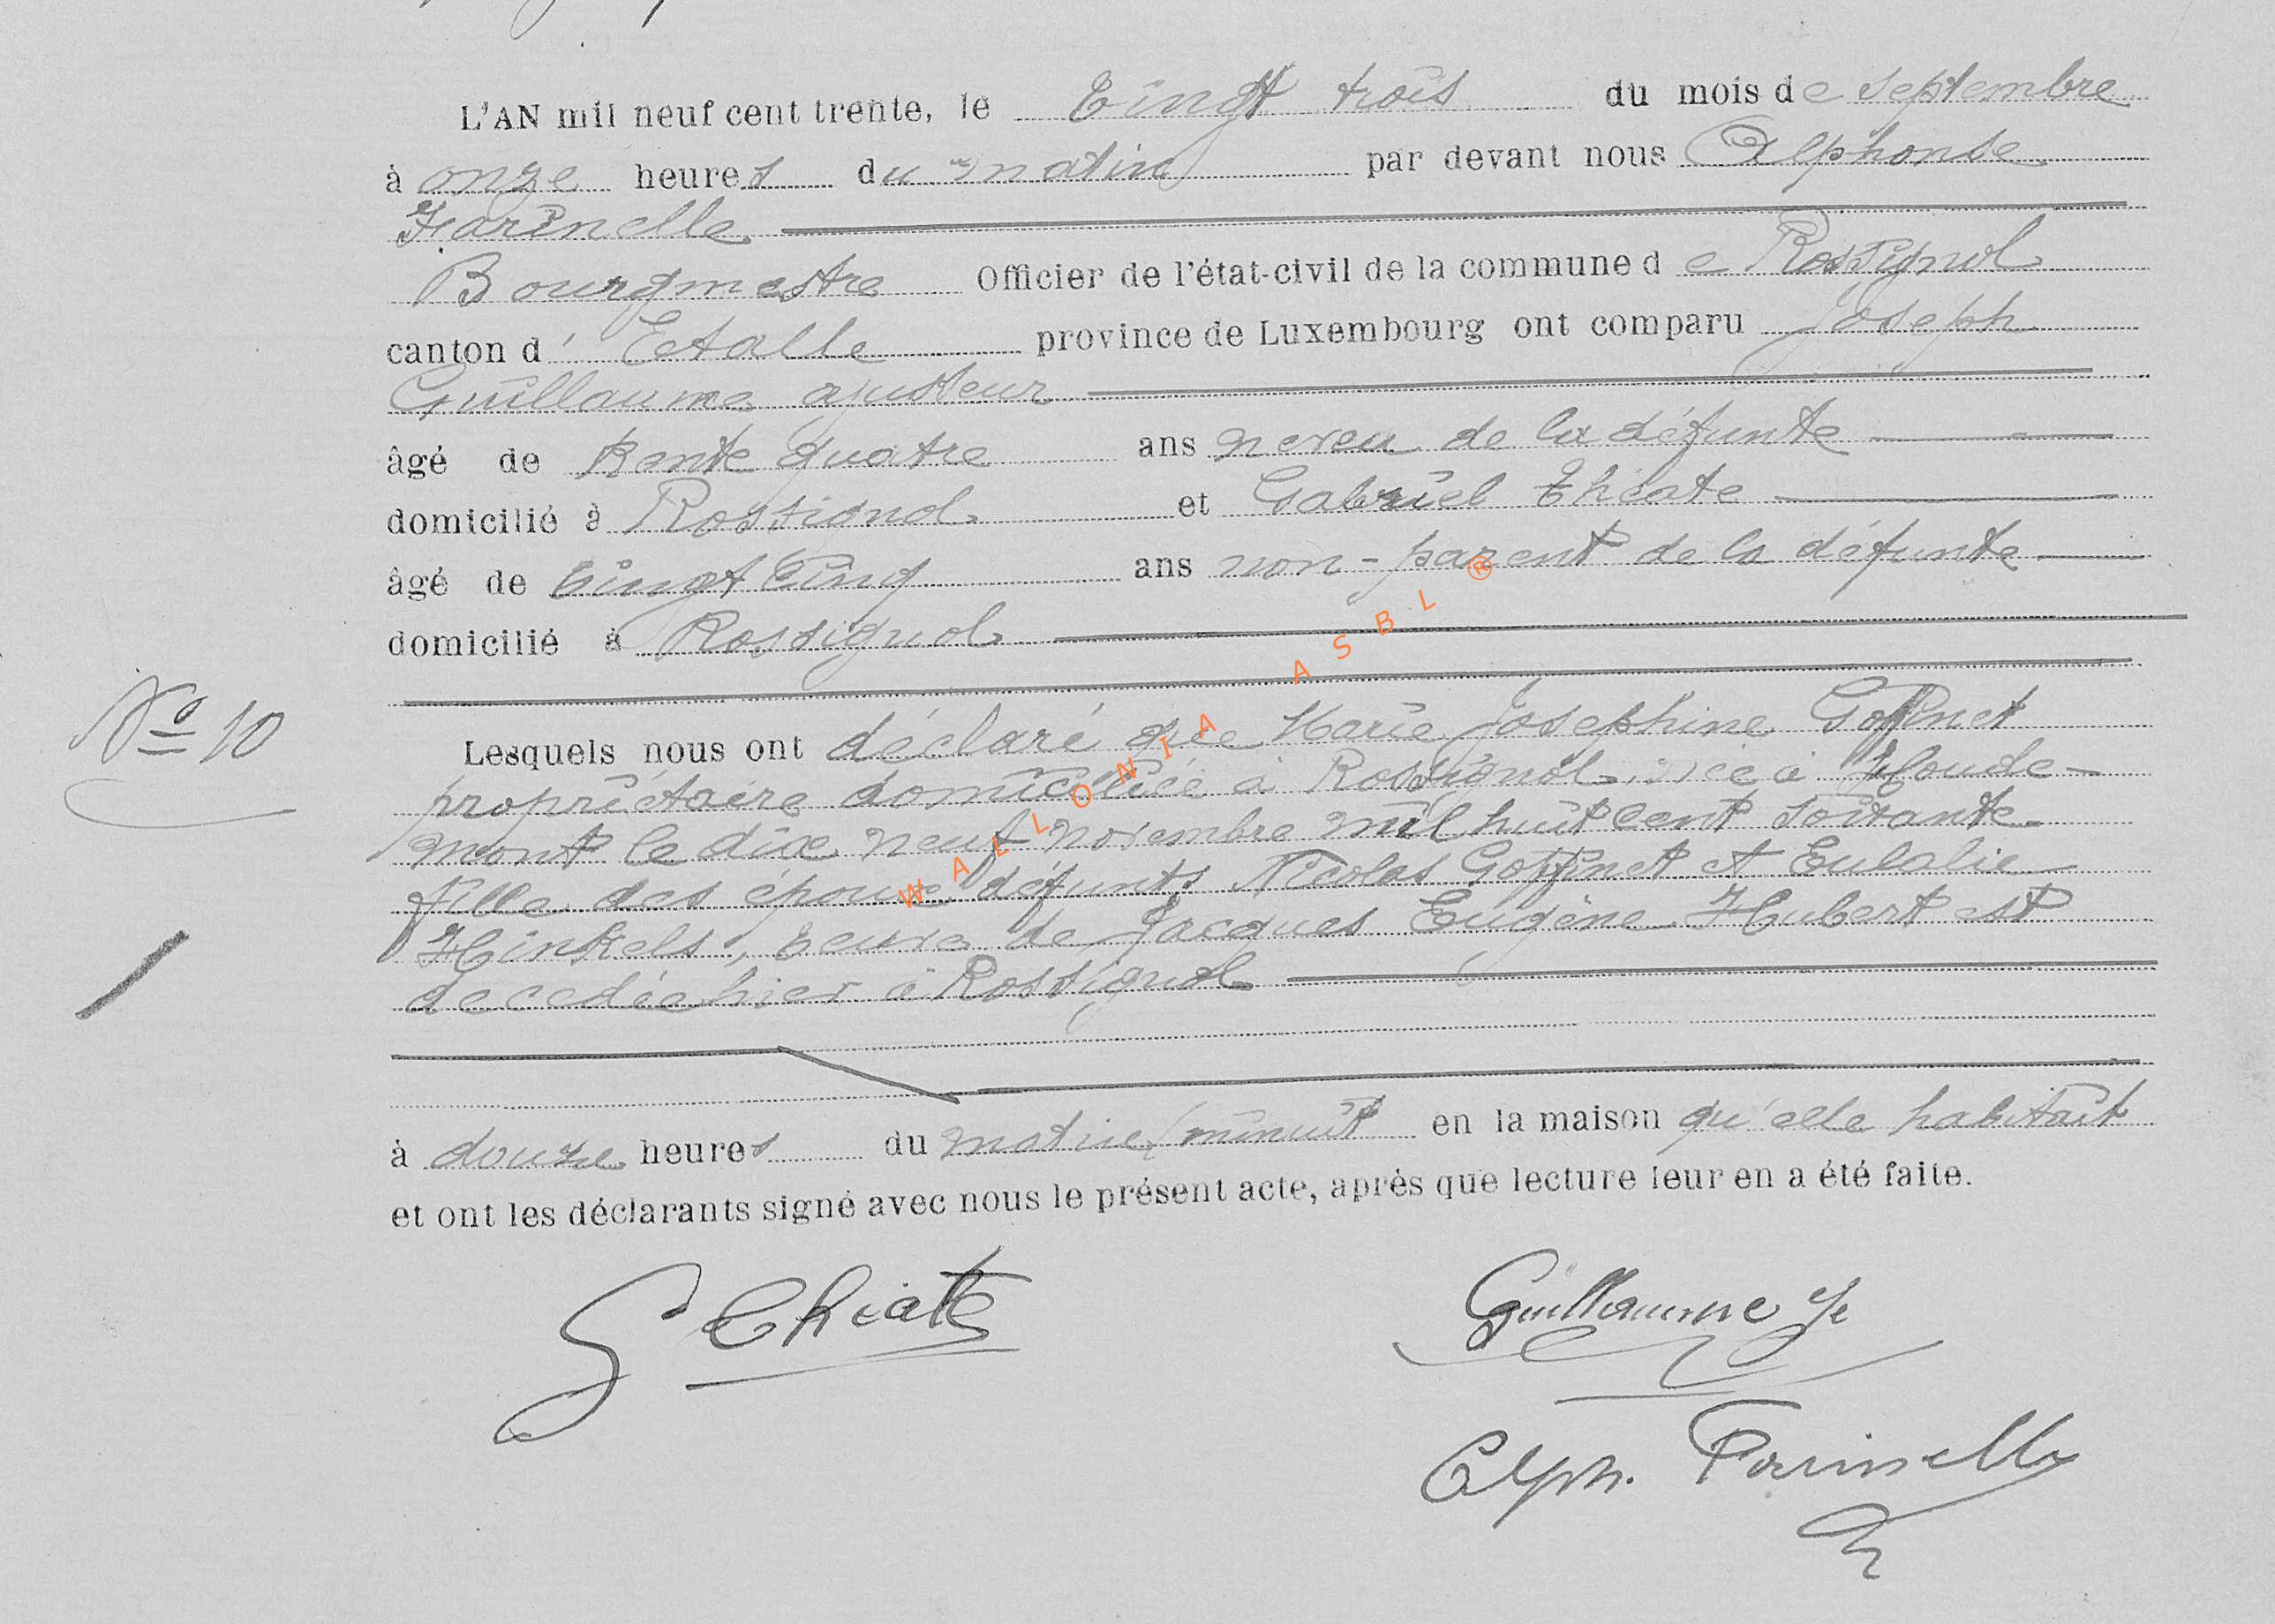 L'AN mil neuf cent trente, le Vingt trois du mois de septembre
à onze heures du matin par devant nous Alphonse
Farinelle
Bourgmestre Officier de l'état-civil de la commune de Rossignol
canton d' Etalle province de Luxembourg ont comparu Joseph
Guillaume ajusteur
âgé de trente quatre ans neveu de la défunte
domicilié à Rossignol et Gabriel Théate
âgé de vingt cinq ans non-parent de la défunte
domicilié à Rossignol
Nº 10
Lesquels nous ont déclaré que Marie Joséphine Goffinet
propriétaire domiciliée à Rossignol née à Houde-
mont le dix neuf novembre mil huit cent soixante
fille des époux défunts Nicolas Goffinet et Eulalie
Hinkels, veuve de Jacques Eugène Hubert est
decedée hier à Rossignol
à douze heures du matin (minuit en la maison qu'elle habitait
et ont les déclarants signé avec nous le présent acte, après que lecture leur en a été faite.
G Théate
Guillaume Je
Alph. Farinelle
WALLONIA ASBL ®